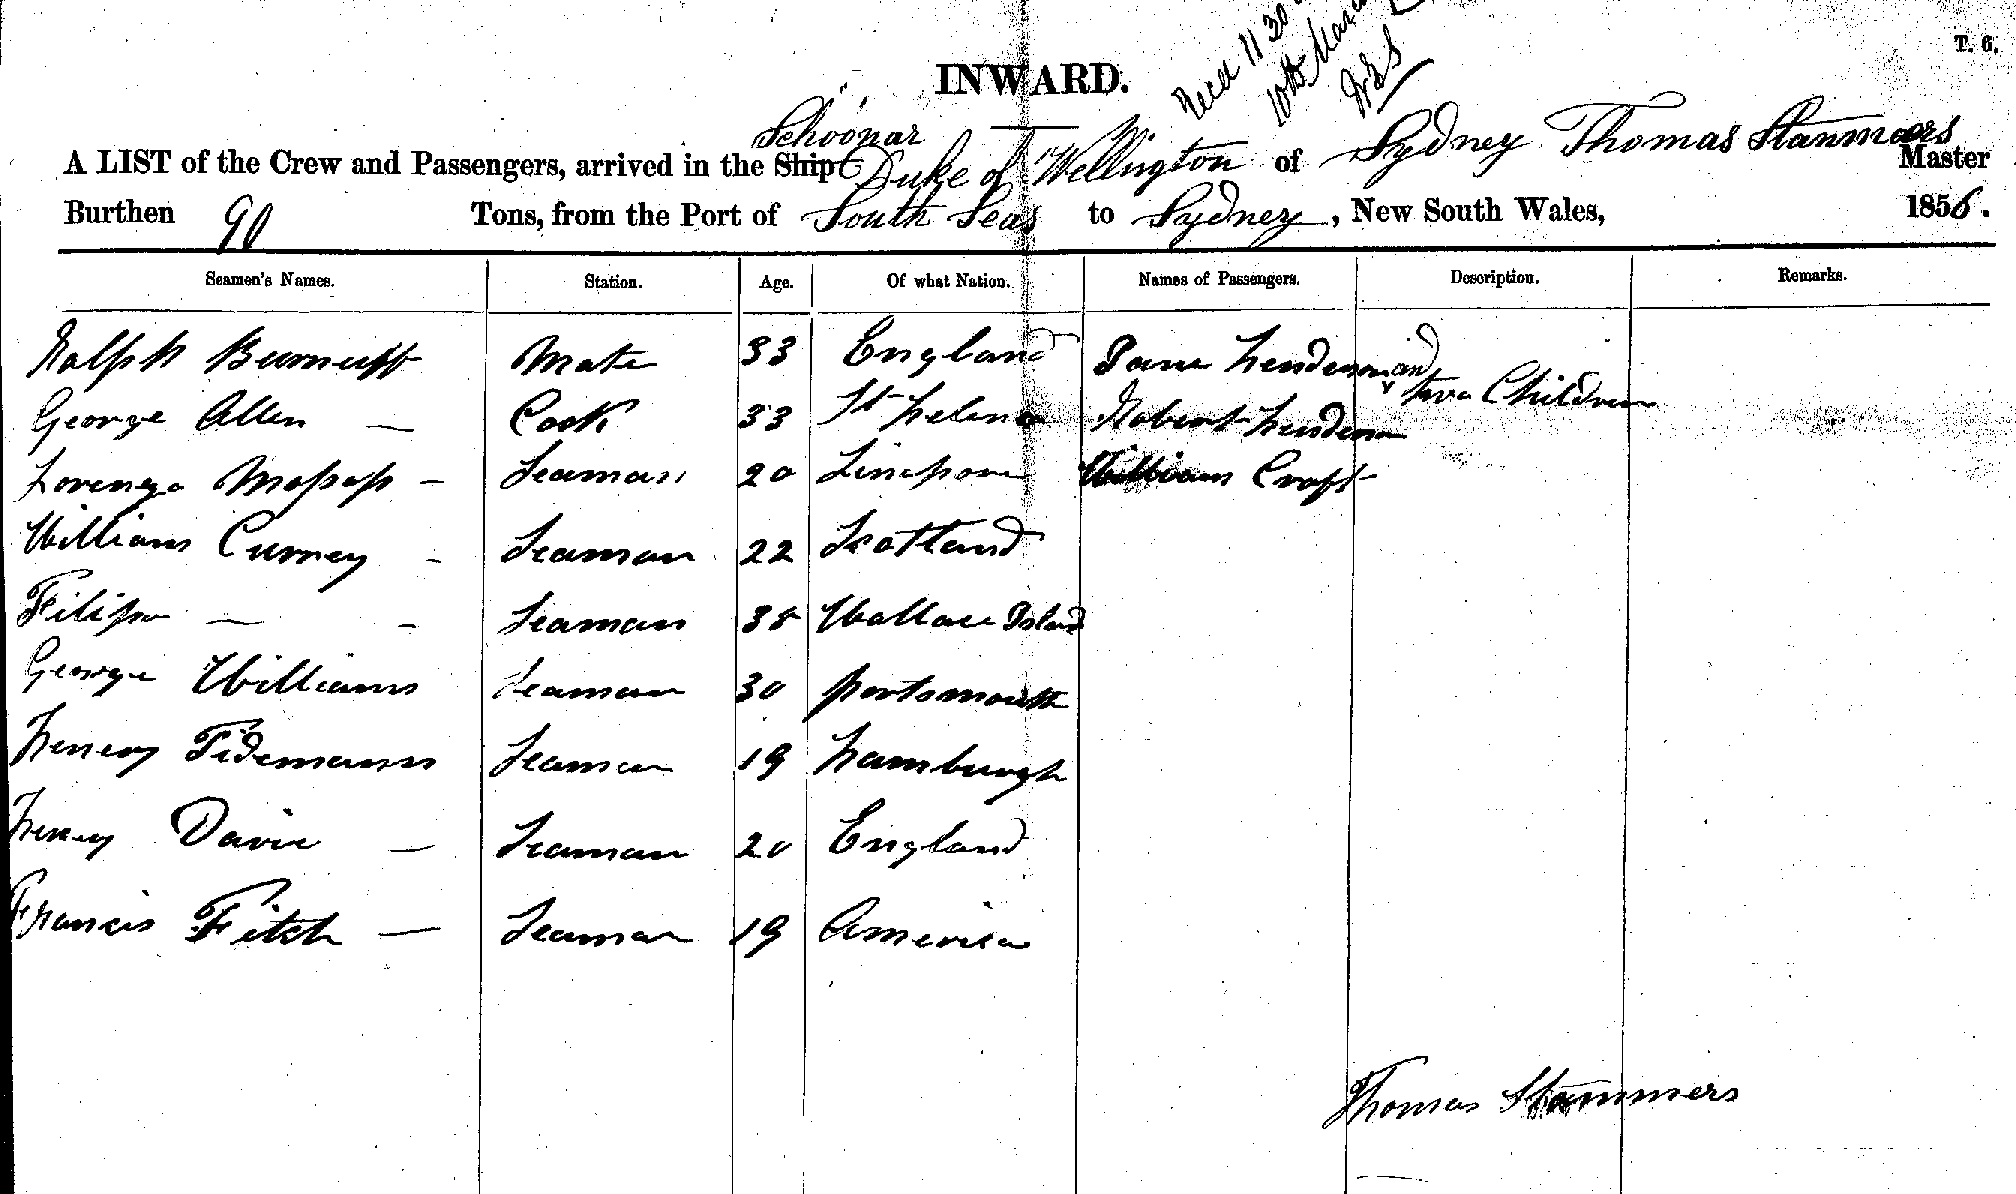 T. 6.
Recd 11 30
10th March
INWARD.
Schoonar
A LIST of the Crew and Passengers, arrived in the Ship Duke of Wellington of Sydney Thomas Stammers Master
Burthen 90 Tons, from the Port of South Seas to Sydney, New South Wales, 1856.
Seamen's Names. Station. Age. Of what Nation. Names of Passengers. Description. Remarks.
Ralph Mate 33 England Jane Henderson and
two Children
George Allen — Cook 33 St Helena Robert Henderson
Lorenzo - Seaman 20 William Croft
William Curney - Seaman 22 Scotland
Filipo — - Seaman 38 Wallace Island
George Williams Seaman 30 portsmouth
Henery Tidemann Seaman 19 hamburgh
Henery Davie — Seaman 20 England
Francis Fitch — Seaman 19 America
Thomas Stammers